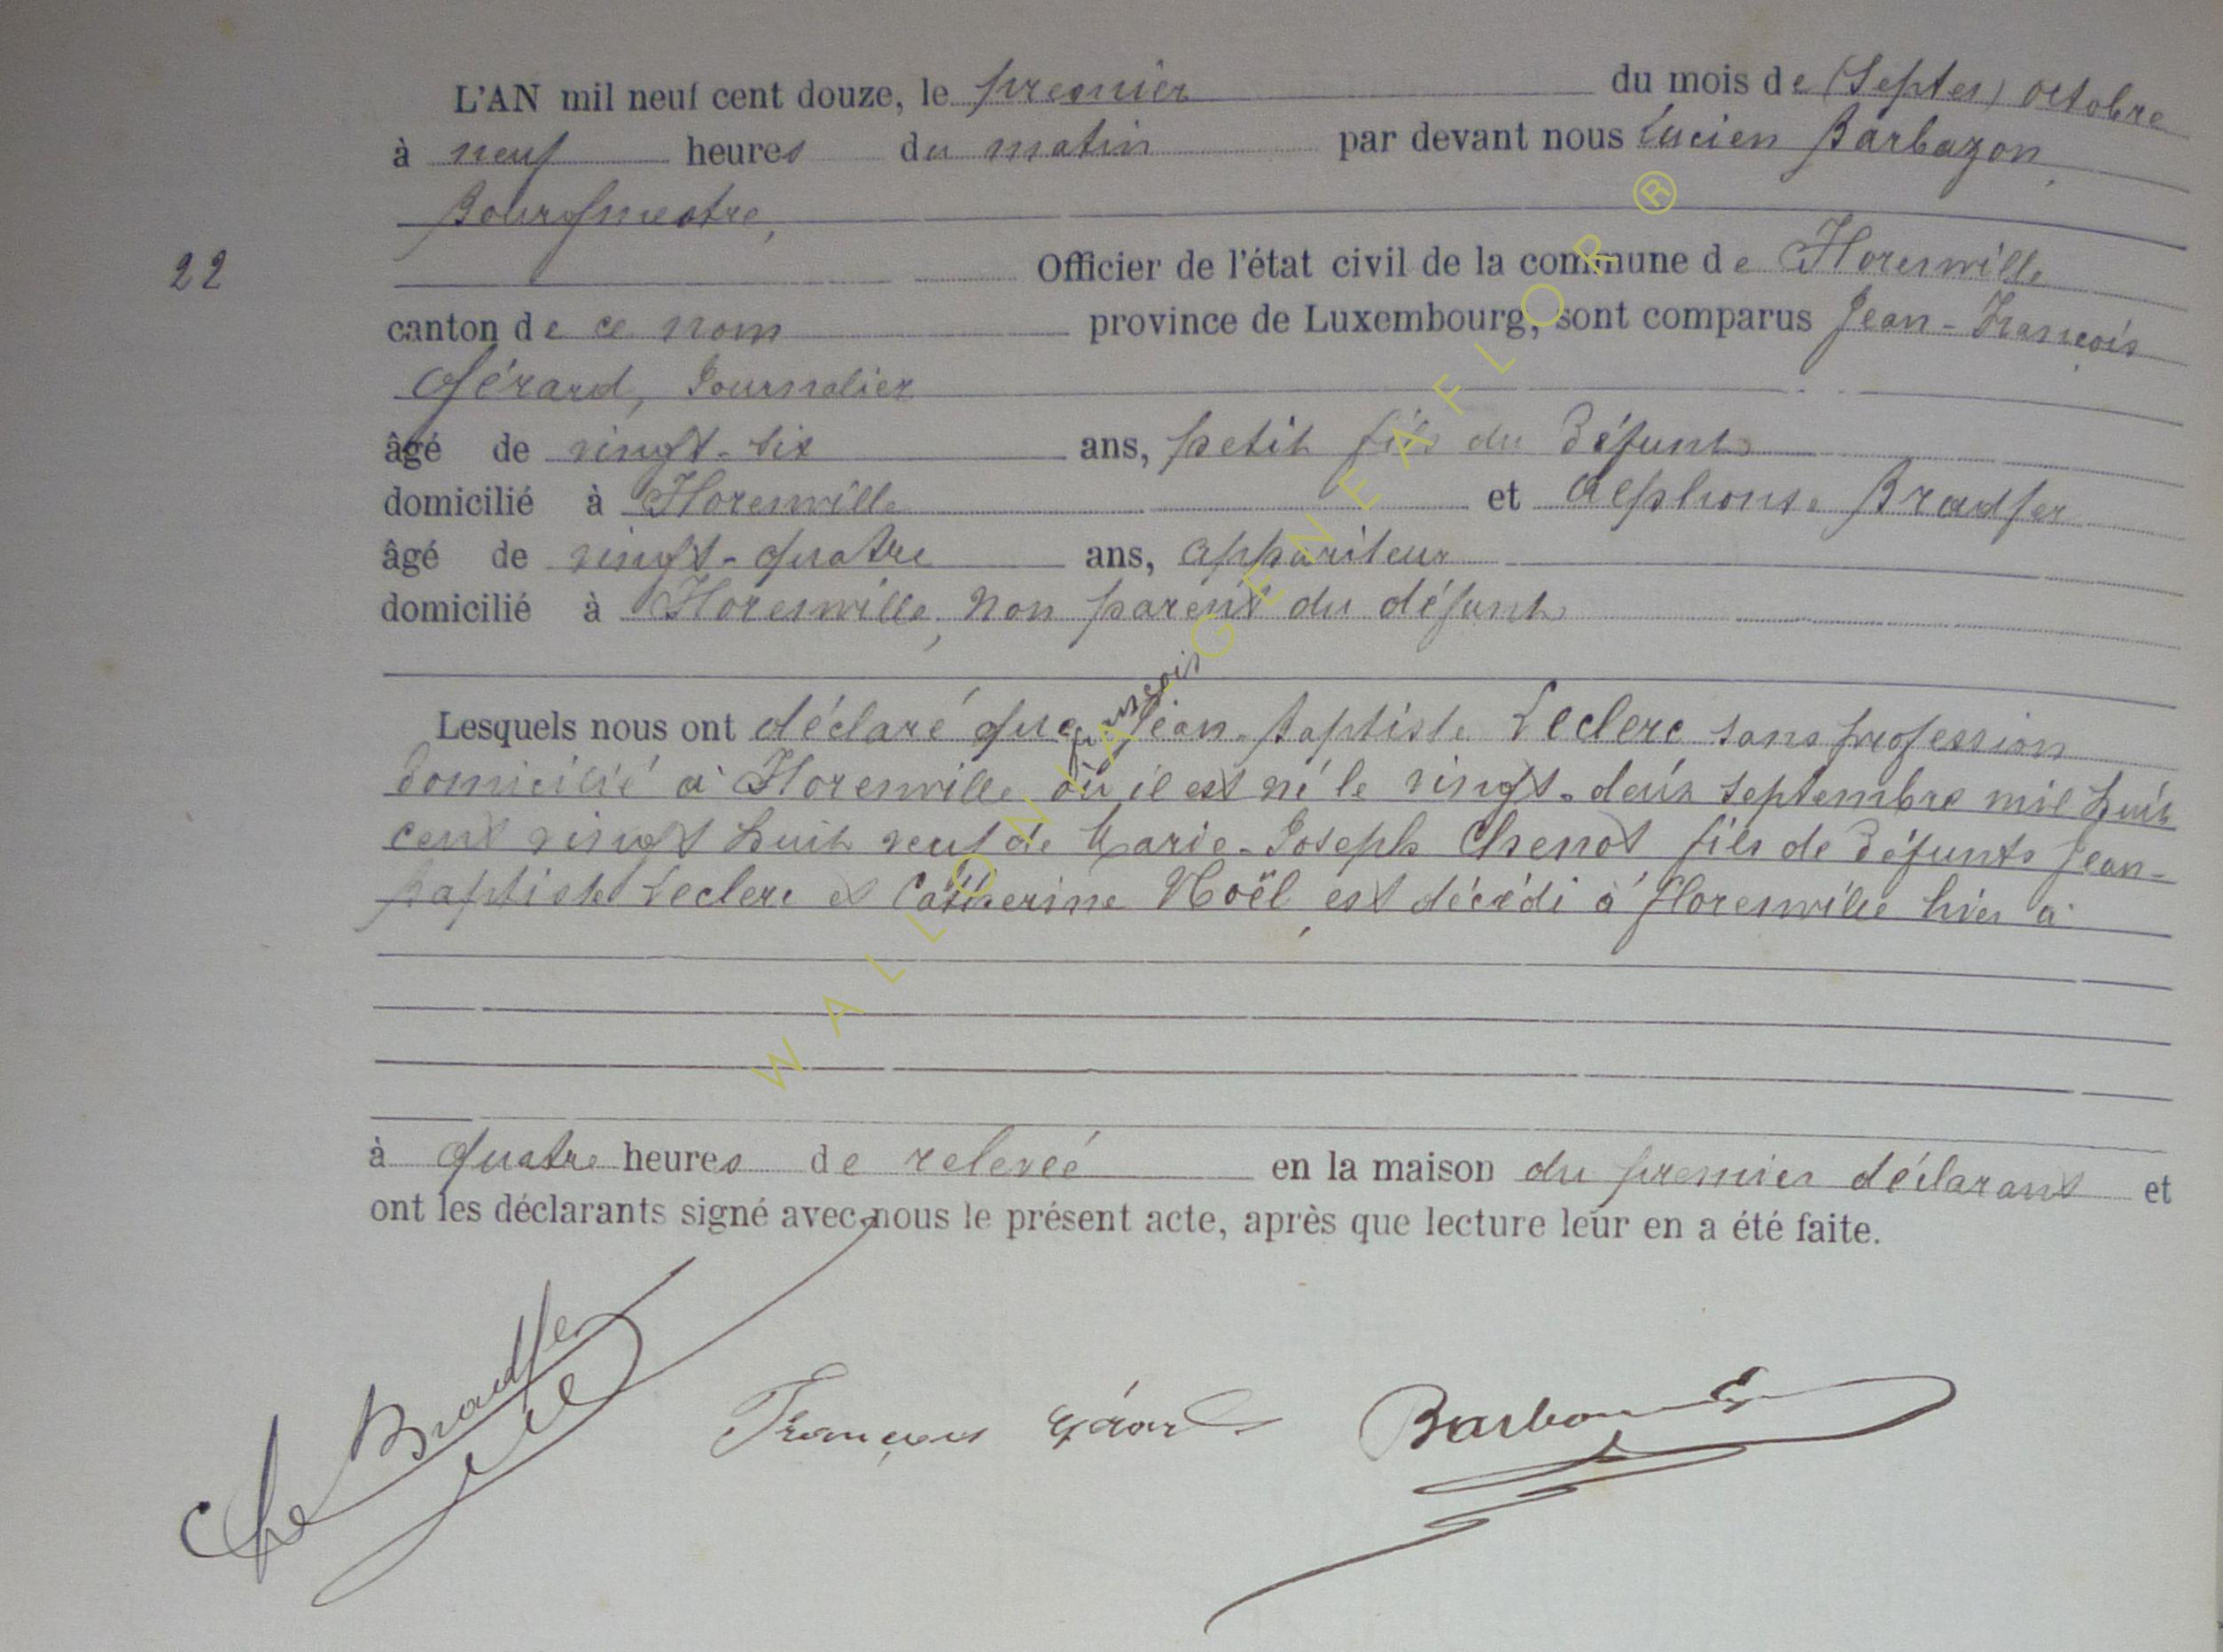 L'AN mil neuf cent douze, le premier du mois de (Septem) octobre
à neuf heures du matin par devant nous Lucien Barbazon,
Bourgmestre,
22
Officier de l'état civil de la commune de Florenville
canton de ce nom province de Luxembourg, sont comparus Jean-François
Gérard, Journalier
âgé de vingt-six ans, petit fils du défunt
domicilié à Florenville et Alphonse Bradfer
âgé de vingt-quatre ans, appariteur
domicilié à Florenville, non parent du défunt
françois
Lesquels nous ont déclaré que Jean-Baptiste Leclerc sans profession
domicilié à Florenville où il est né le vingt-deux septembre mil huit
cent vingt huit veuf de Marie-Joseph Chenot fils de défunts Jean-
Baptiste Leclerc et Catherine Noël, est décédé à Florenville hier à
à quatre heures de relevée en la maison du premier déclarant et
ont les déclarants signé avec nous le présent acte, après que lecture leur en a été faite.
Bradfer
François Gérard Barbazon
WALLONIA GENEAFLOR ®